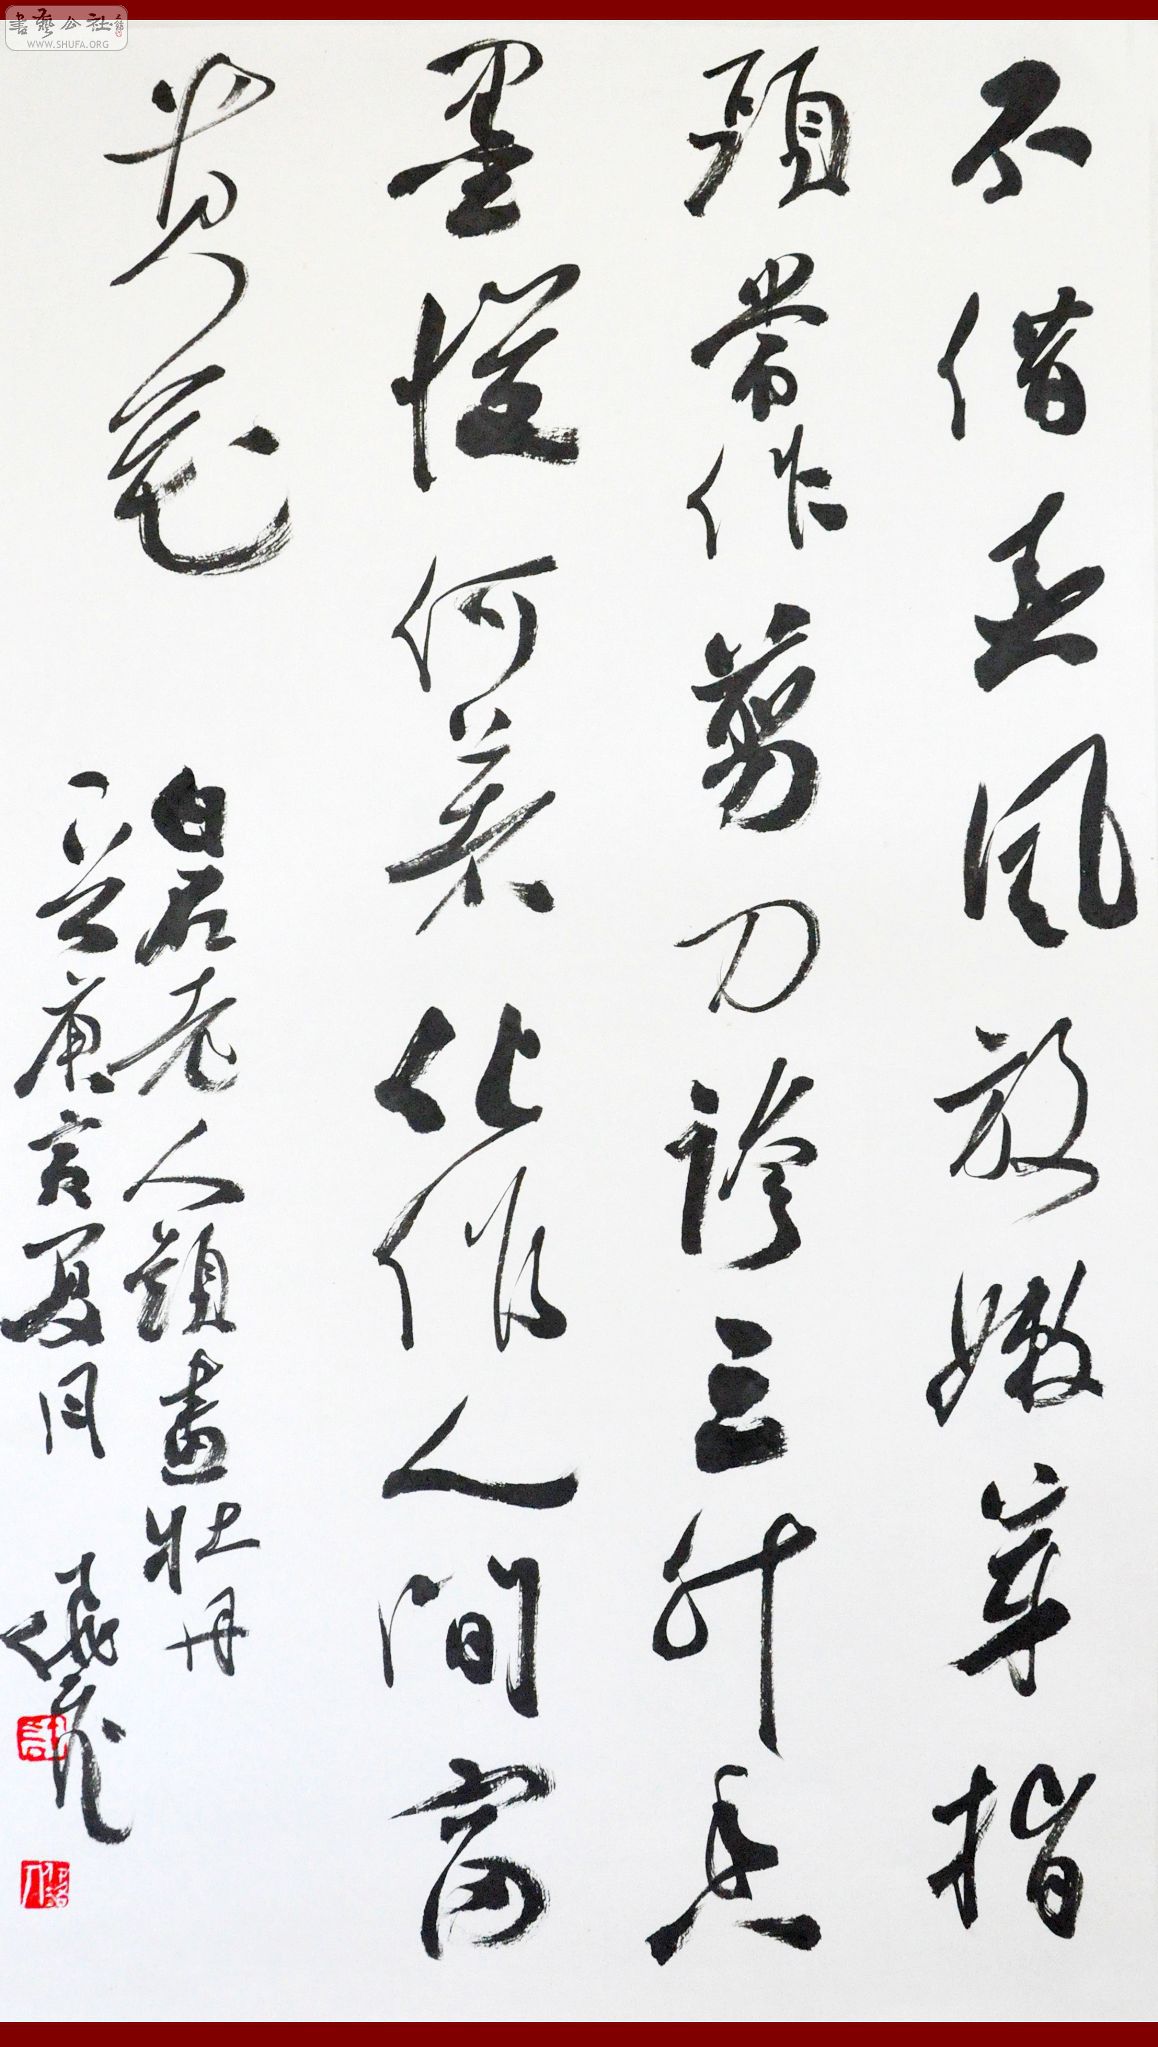 書藝公社
WWW.SHUFA.ORG
不借春風放嫩芽指
頭常作剪刀誇三升
墨從何美化作人間富
貴花
白石老人題畫牡丹
一絕庚寅夏月